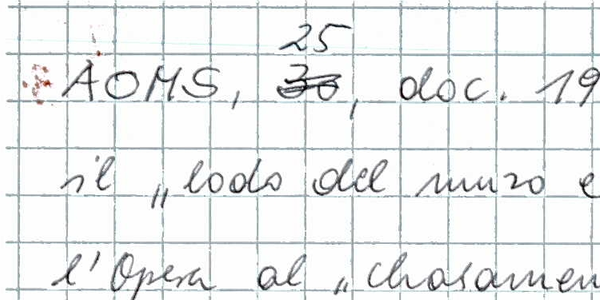 25
AOMS, 30, doc. 19
il „lodo del muro e
l'Opera al „chasamen